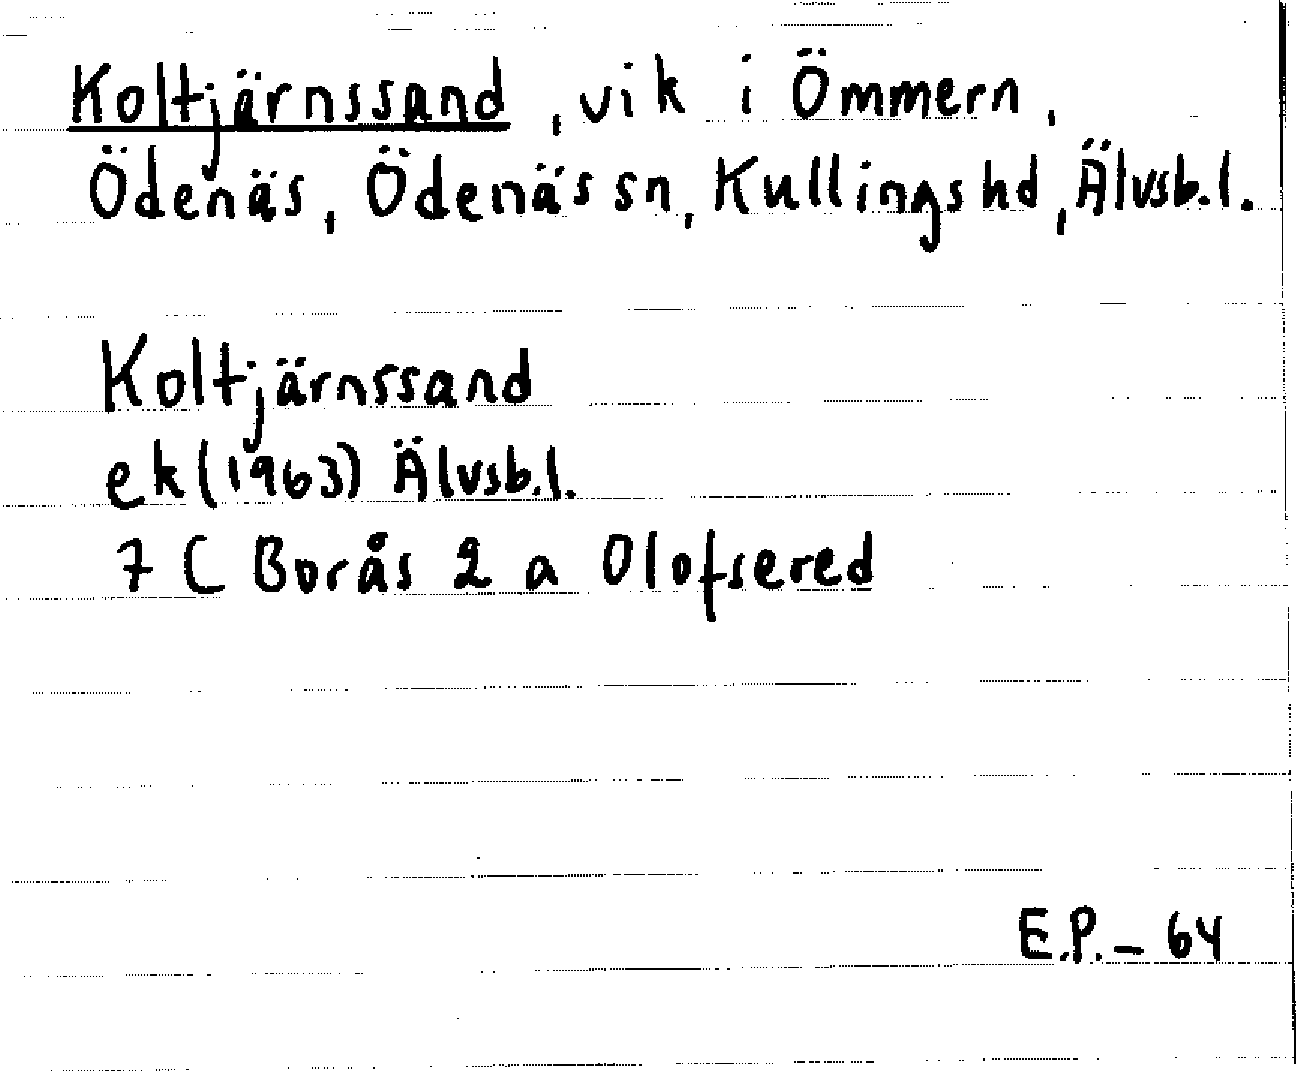 Koltjärnssand, vik i Ömmern,
Ödenäs, Ödenäs sn, Kullings hd, Älvsb.l.
Koltjärnssand
ek (1963) Älvsb.l.
7 C Borås 2 a Olofsered
E.P. – 64